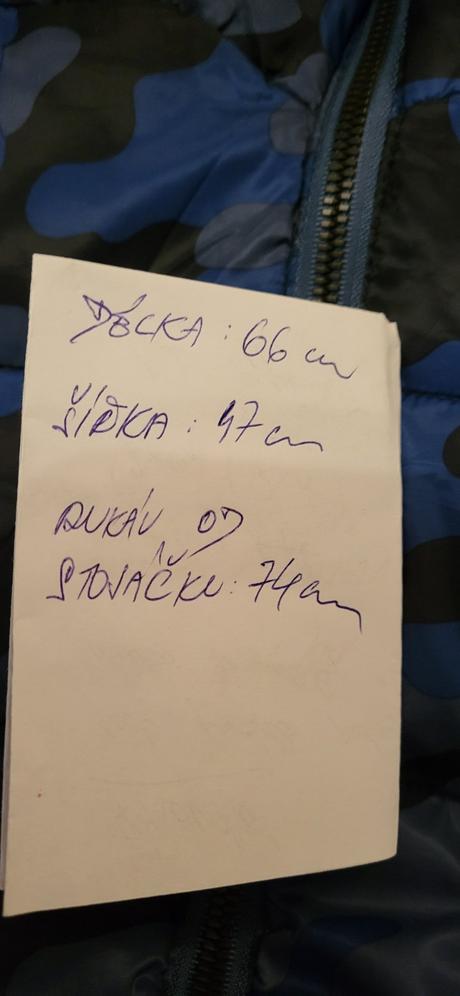 DÉLKA : 66 cm
ŠÍŘKA : 47 cm
RUKÁV OD
STOJÁČKU: 74 cm